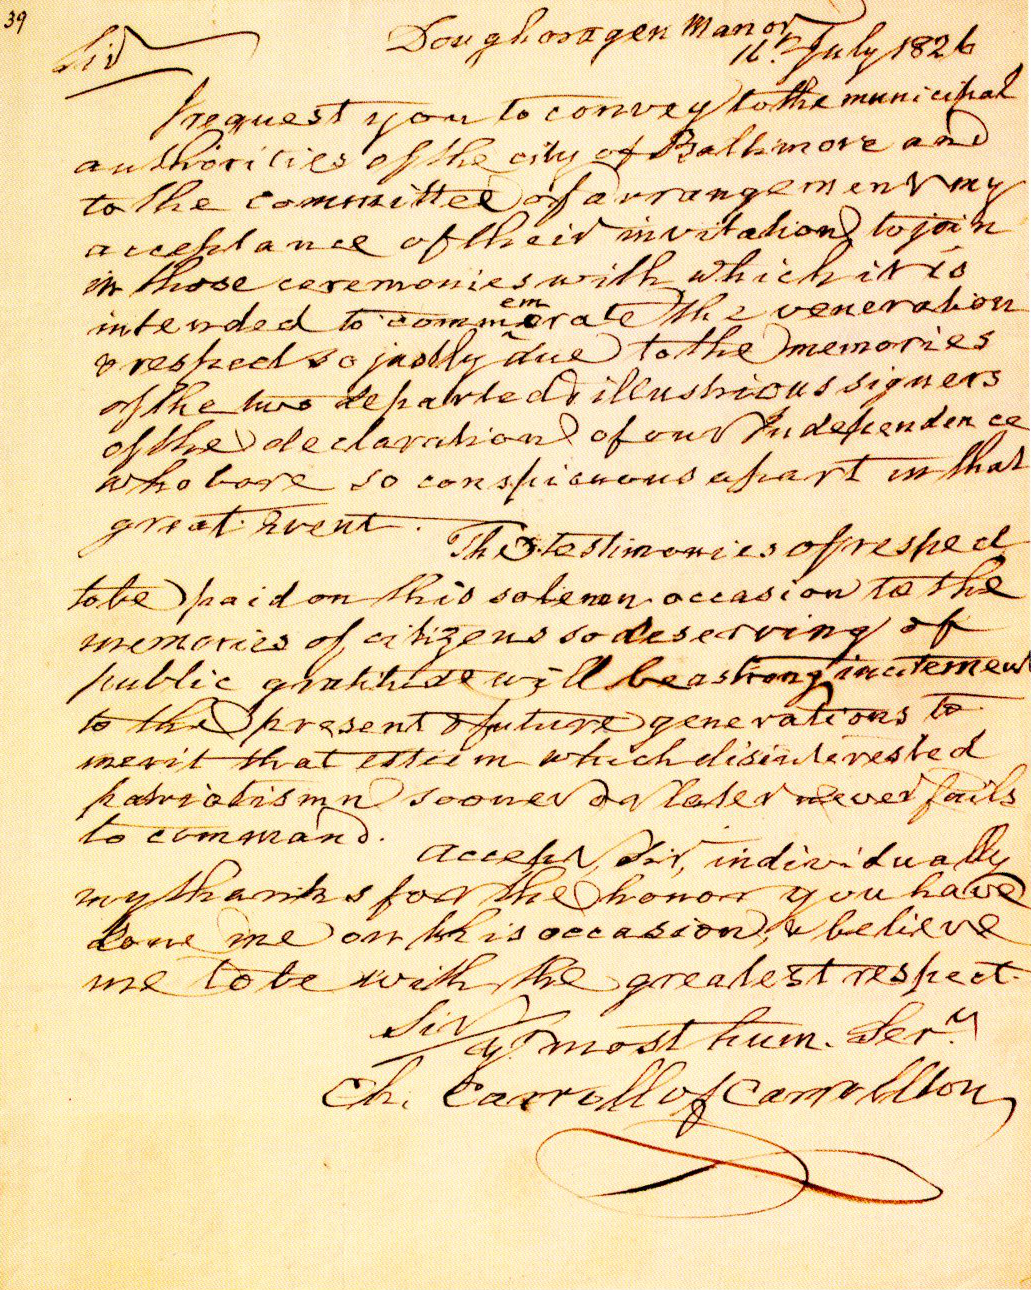 39
Doughoragen Manor
Sir 16th July 1826
I request you to convey to the municipal
authorities of the city of Baltimore and
to the committee of arrangement my
acceptance of their invitation to join
in those ceremonies with which it is
intended to commemerate the veneration
& respect so justly due to the memories
of the two departed illustrious signers
of the declaration of our Independence
who bore so conspicuous a part in that
great Event.
The testimonies of respect
to be paid on this solemn occasion to the
memories of citizens so deserving of
public gratitude will be a strong incitement
to the present & future generations to
merit that esteem which disinterested
patriotism sooner or later never fails
to command.
Accept, Sir, individually
my thanks for the honor you have
done me on this occasion, & believe
me to be with the greatest respect.
Sir
yr. most hum. Ser.
Ch. Carroll of Carrollton,